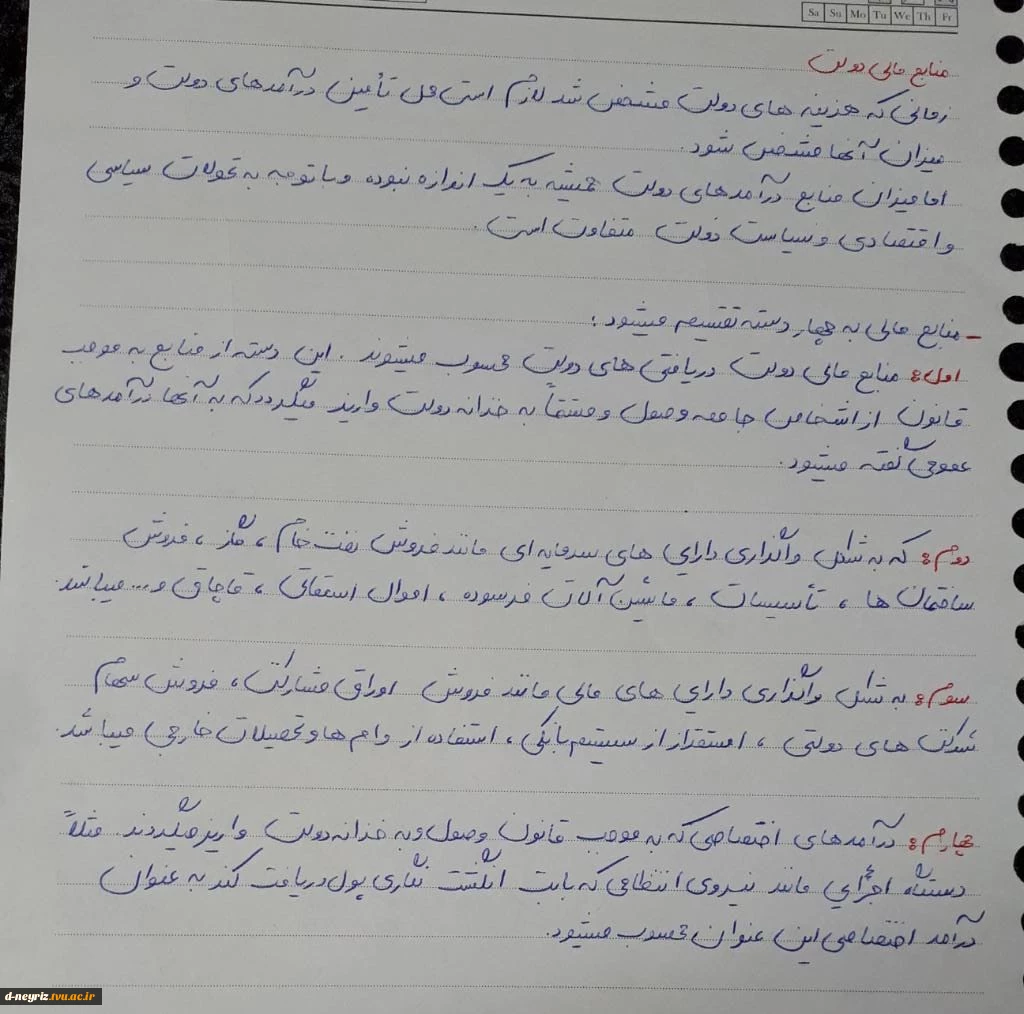 Sa Su Mo Tu We Th Fr
منابع مالی دولت
زمانی که هزینه های دولت مشخص شد لازم است محل تأمین درآمدهای دولت و
میزان آنها مشخص شود.
اما میزان منابع درآمدهای دولت همیشه به یک اندازه نبوده و با توجه به تحولات سیاسی
و اقتصادی و سیاست دولت متفاوت است.
- منابع مالی به چهار دسته تقسیم میشود:
اول: منابع مالی دولت دریافتی های دولت محسوب میشوند. این دسته از منابع به موجب
قانون از اشخاص جامعه وصول و مستقیماً به خزانه دولت واریز میگردد که به آنها درآمدهای
عمومی گفته میشود.
دوم: که به شکل واگذاری دارایی های سرمایه ای مانند فروش نفت خام، گاز، فروش
ساختمان ها، تأسیسات، ماشین آلات فرسوده، اموال اسقاطی، قاچاق و... میباشد.
سوم: به شکل واگذاری دارایی های مالی مانند فروش اوراق مشارکت، فروش سهام
شرکت های دولتی، استقراز از سیستم بانکی، استفاده از وام ها و تحصیلات خارجی میباشد.
چهارم: درآمدهای اختصاصی که به موجب قانون وصول و به خزانه دولت واریز میگردند. مثلاً
دستگاه اجرایی مانند نیروی انتظامی که بابت انگشت نگاری پول دریافت کند به عنوان
درآمد اختصاصی این عنوان محسوب میشود.
d-neyriz.tvu.ac.ir